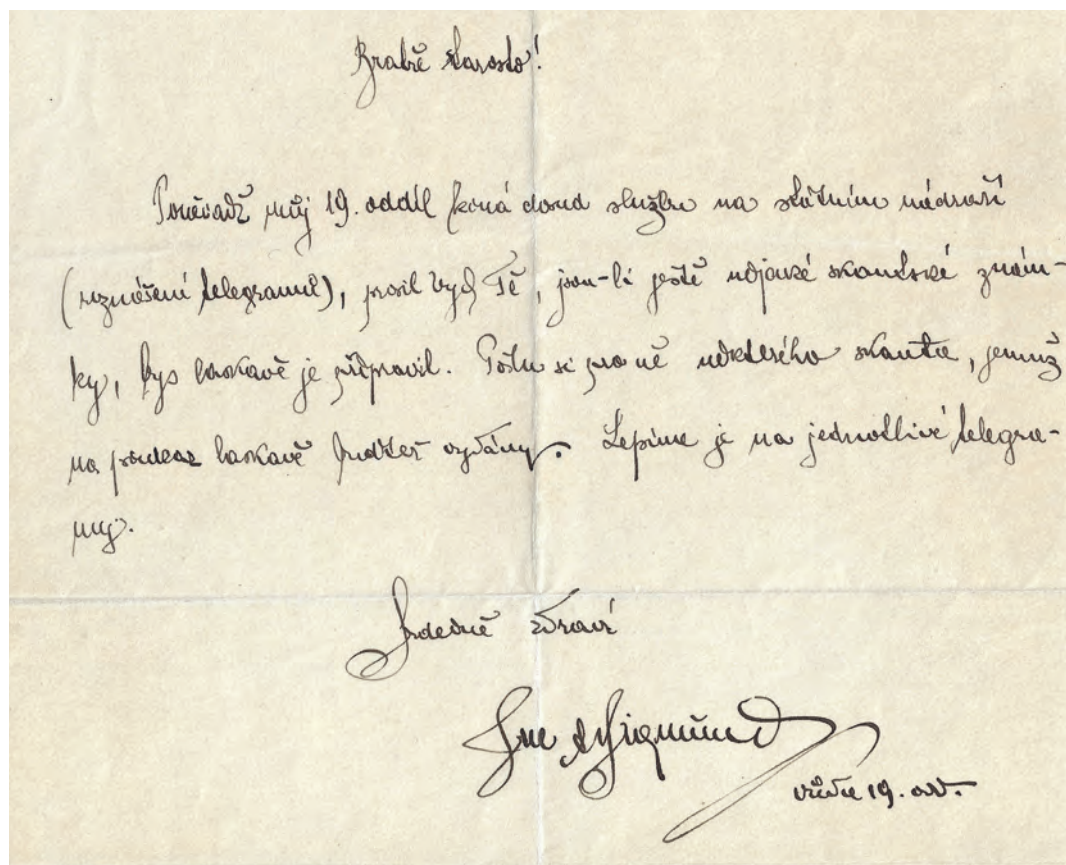 Bratře starosto!
Poněvadž můj 19. oddíl koná dosud službu na státním nádraží
(roznášení telegramů), prosil bych Tě, jsou-li ještě nějaké skautské znám-
ky, bys laskavě je připravil. Pošlu si pro ně některého skauta, jemuž
na průkaz laskavě buďtež vydány. Lepíme je na jednotlivé telegra-
my.
Srdečně zdraví
Zigmund
vůdce 19. odd.